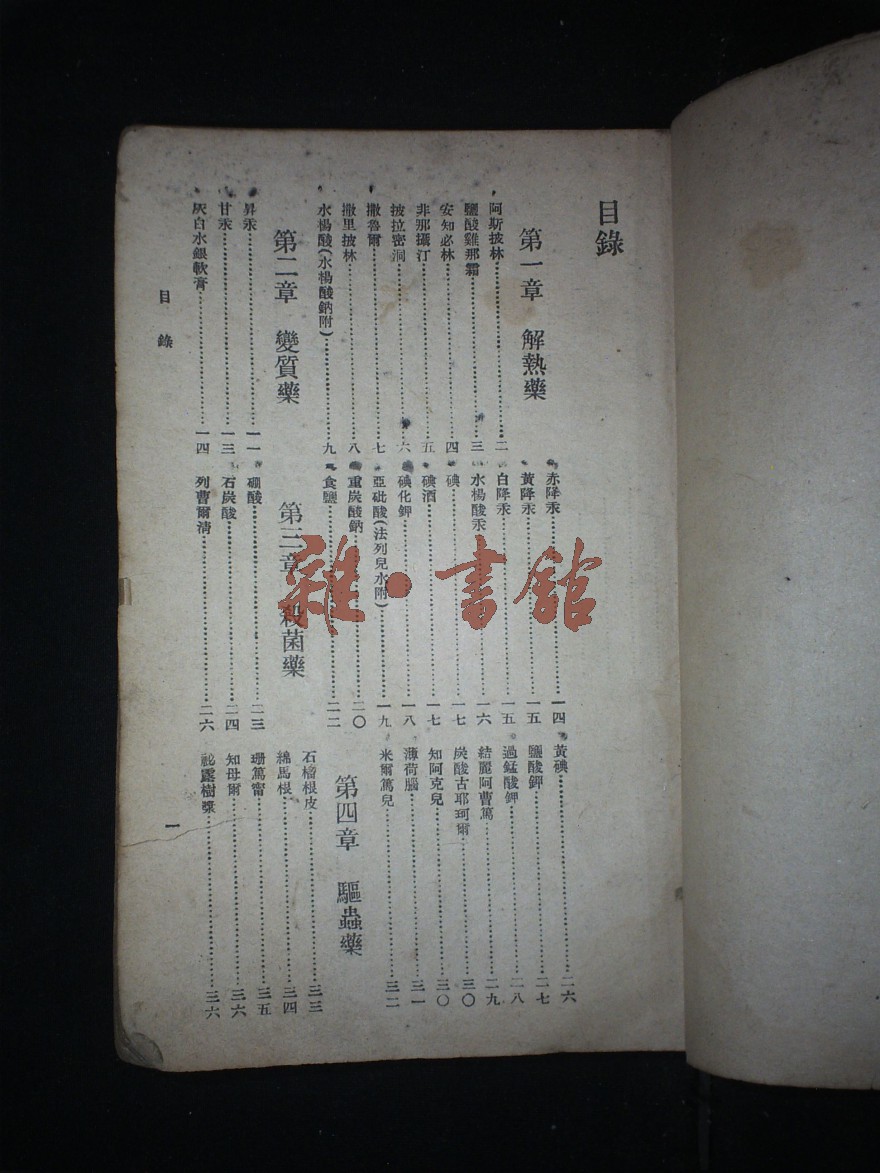 目錄
第一章 解熱藥
阿斯披林……二
鹽酸雞那霜……三
安知必林……四
非那攝汀……五
披拉密洞……六
撒魯爾……七
撒里披林……八
水楊酸(水楊酸鈉附)……九
第二章 變質藥
昇汞……一一
甘汞……一三
灰白水銀軟膏……一四
赤降汞……一四
黃降汞……一五
白降汞……一五
水楊酸汞……一六
碘……一七
碘酒……一七
碘化鉀……一八
亞砒酸(法列兒水附)……一九
重炭酸鈉……二〇
食鹽……二二
第三章 殺菌藥
硼酸……二三
石炭酸……二四
列曹爾清……二六
黃碘……二六
鹽酸鉀……二七
過錳酸鉀……二八
結麗阿曹篤……二九
炭酸古耶珂爾……三〇
知阿克兒……三〇
薄荷腦……三一
米爾篤兒……三二
第四章 驅蟲藥
石榴根皮……三三
綿馬根……三四
珊篤甯……三五
知母爾……三六
祕露樹漿……三六
目錄
一
雜·書館